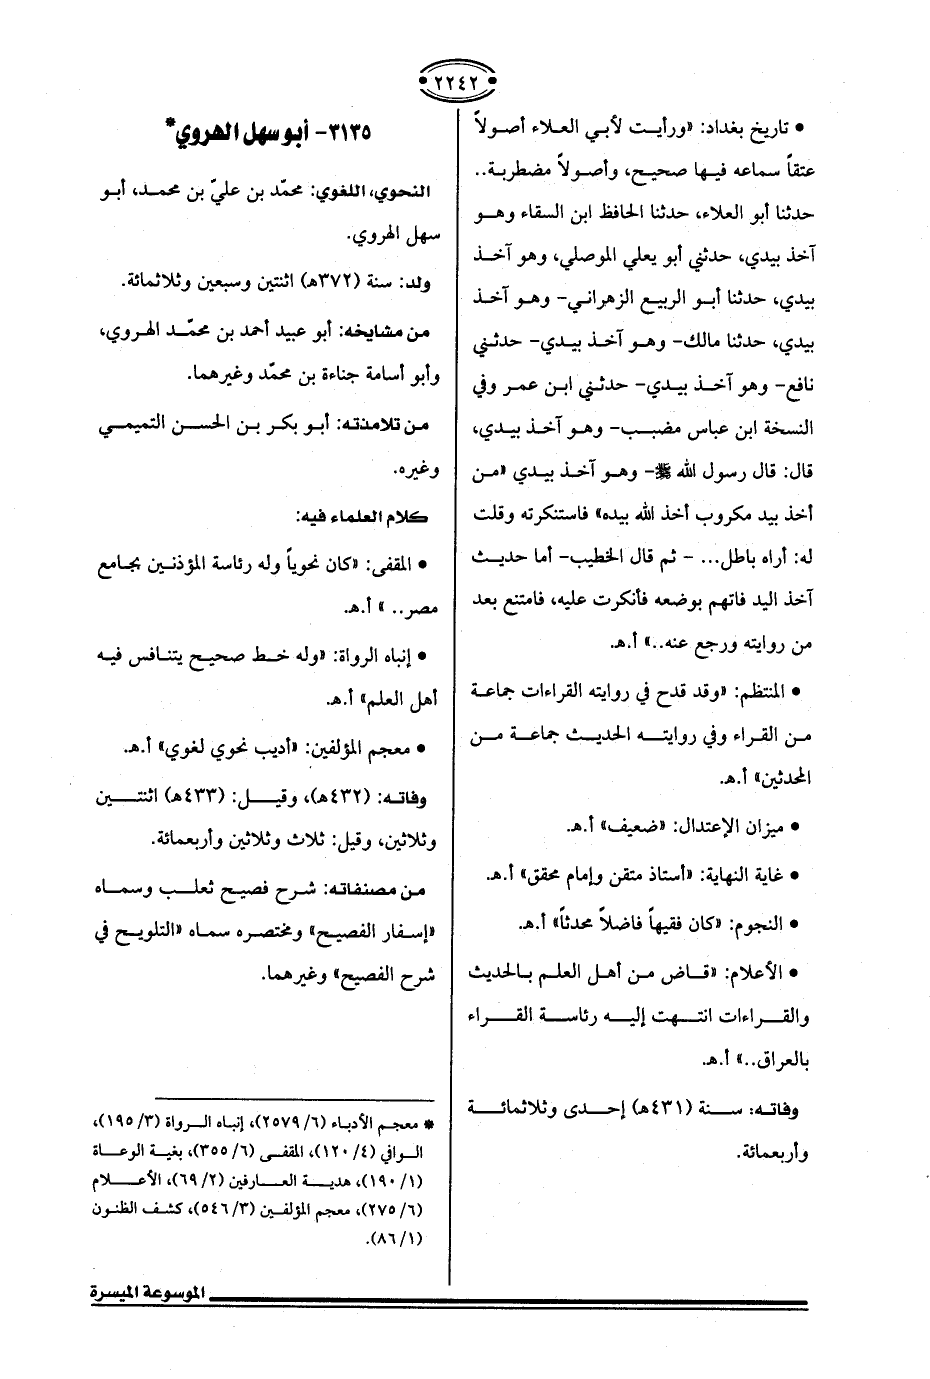 ٢٢٤٢
• تاريخ بغداد: «ورأيت لأبي العلاء أصولاً
عتقاً سماعه فيها صحيح، وأصولاً مضطربة..
حدثنا أبو العلاء، حدثنا الحافظ ابن السقاء وهو
آخذ بيدي، حدثني أبو يعلي الموصلي، وهو آخذ
بيدي، حدثنا أبو الربيع الزهراني- وهو آخذ
بيدي، حدثنا مالك- وهو آخذ بيدي- حدثني
نافع- وهو آخذ بيدي- حدثني ابن عمر وفي
النسخة ابن عباس مضبب- وهو آخذ بيدي،
قال: قال رسول الله ﷺ- وهو آخذ بيدي «من
أخذ بيد مكروب أخذ الله بيده» فاستنكرته وقلت
له: أراه باطل... - ثم قال الخطيب- أما حديث
آخذ اليد فاتهم بوضعه فأنكرت عليه، فامتنع بعد
من روايته ورجع عنه..» أ.هـ.
• المنتظم: «وقد قدح في روايته القراءات جماعة
من القراء وفي روايته الحديث جماعة من
المحدثين» أ.هـ.
• ميزان الإعتدال: «ضعيف» أ.هـ.
• غاية النهاية: «أستاذ متقن وإمام محقق» أ.هـ.
• النجوم: «كان فقيهاً فاضلاً محدثاً» أ.هـ.
• الأعلام: «قاض من أهل العلم بالحديث
والقراءات انتهت إليه رئاسة القراء
بالعراق..» أ.هـ.
وفاته: سنة (٤٣١هـ) إحدى وثلاثمائة
وأربعمائة.
٣١٣٥- أبو سهل الهروي*
النحوي، اللغوي: محمّد بن عليّ بن محمد، أبو
سهل الهروي.
ولد: سنة (٣٧٢هـ) اثنتين وسبعين وثلاثمائة.
من مشايخه: أبو عبيد أحمد بن محمّد الهروي،
وأبو أسامة جناءة بن محمّد وغيرهما.
من تلامذته: أبو بكر بن الحسن التميمي
وغيره.
كلام العلماء فيه:
• المقفى: «كان نحوياً وله رئاسة المؤذنين بجامع
مصر.. » أ.هـ.
• إنباه الرواة: «وله خط صحيح يتنافس فيه
أهل العلم» أ.هـ.
• معجم المؤلفين: «أديب نحوي لغوي» أ.هـ.
وفاته: (٤٣٢هـ)، وقيل: (٤٣٣هـ) اثنتين
وثلاثين، وقيل: ثلاث وثلاثين وأربعمائة.
من مصنفاته: شرح فصيح ثعلب وسماه
«إسفار الفصيح» ومختصره سماه «التلويح في
شرح الفصيح» وغيرهما.
* معجم الأدباء (٢٥٧٩/٦)، إنباه الرواة (١٩٥/٣)،
الوافي (١٢٠/٤)، المقفى (٣٥٥/٦)، بغية الوعاة
(١٩٠/١)، هدية العارفين (٦٩/٢)، الأعلام
(٢٧٥/٦)، معجم المؤلفين (٥٤٦/٣)، كشف الظنون
(٨٦/١).
الموسوعة الميسرة